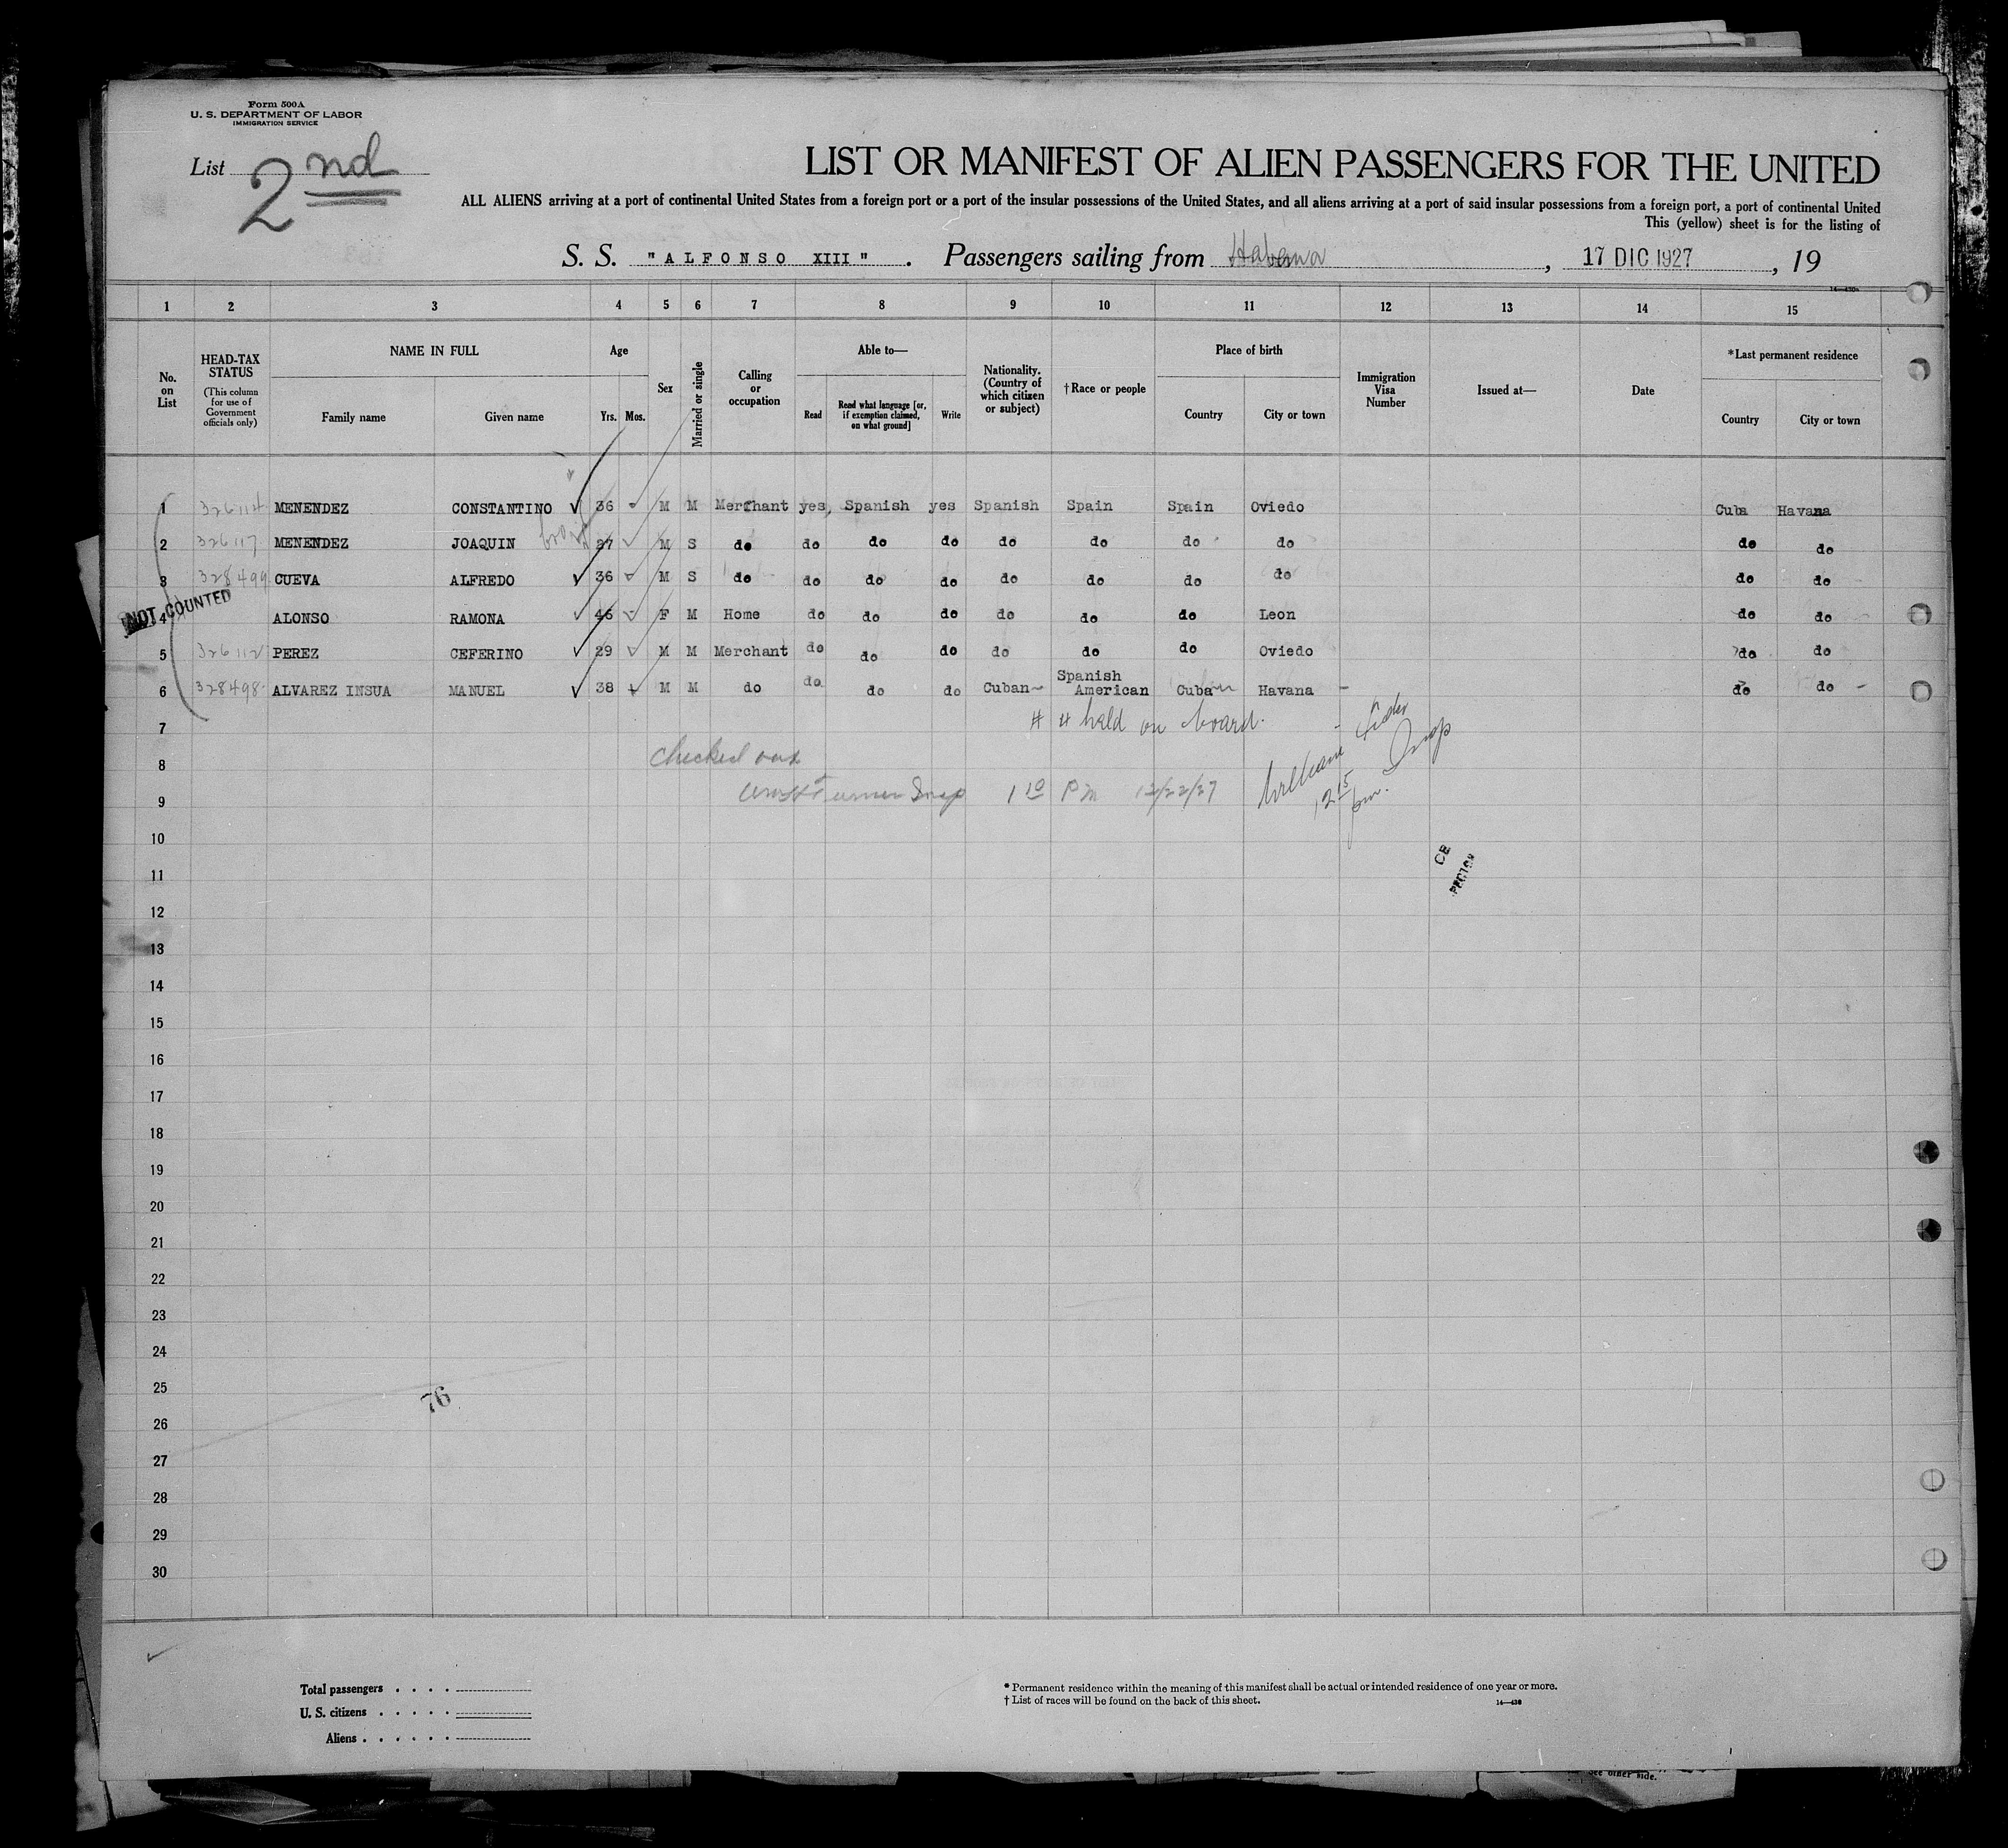 Form 500A
U. S. DEPARTMENT OF LABOR
IMMIGRATION SERVICE
List 2nd
LIST OR MANIFEST OF ALIEN PASSENGERS FOR THE UNITED
ALL ALIENS arriving at a port of continental United States from a foreign port or a port of the insular possessions of the United States, and all aliens arriving at a port of said insular possessions from a foreign port, a port of continental United
This (yellow) sheet is for the listing of
S. S. "ALFONSO XIII" . Passengers sailing from Habana , 17 DIC 1927 , 19
1 2 3 4 5 6 7 8 9 10 11 12 13 14 15
No. on List
HEAD-TAX STATUS
(This column for use of Government officials only)
NAME IN FULL
Family name Given name
Age
Yrs. Mos.
Sex
Married or single
Calling or occupation
Able to—
Read
Read what language [or, if exemption claimed, on what ground]
Write
Nationality. (Country of which citizen or subject)
†Race or people
Place of birth
Country City or town
Immigration Visa Number
Issued at—
Date
*Last permanent residence
Country City or town
1 326114 MENENDEZ CONSTANTINO 36 M M Merchant yes, Spanish yes Spanish Spain Spain Oviedo Cuba Havana
2 326117 MENENDEZ JOAQUIN 27 M S do do do do do do do do do do
3 328499 CUEVA ALFREDO 36 M S do do do do do do do do do do
NOT COUNTED
4 ALONSO RAMONA 46 F M Home do do do do do do Leon do do
5 326112 PEREZ CEFERINO 29 M M Merchant do do do do do do Oviedo do do
6 328498 ALVAREZ INSUA MANUEL 38 M M do do do do Cuban Spanish American Cuba Havana do do
7 # 4 held on board.
8 Checked out
9 Turner Insp 1 10 PM 12/22/27
William
Insp
12 15 pm.
10
CE
PECTOR
11
12
13
14
15
16
17
18
19
20
21
22
23
24
25
76
26
27
28
29
30
Total passengers . . . .
U. S. citizens . . . . .
Aliens . . . . . .
* Permanent residence within the meaning of this manifest shall be actual or intended residence of one year or more.
† List of races will be found on the back of this sheet.
14—430
see other side.